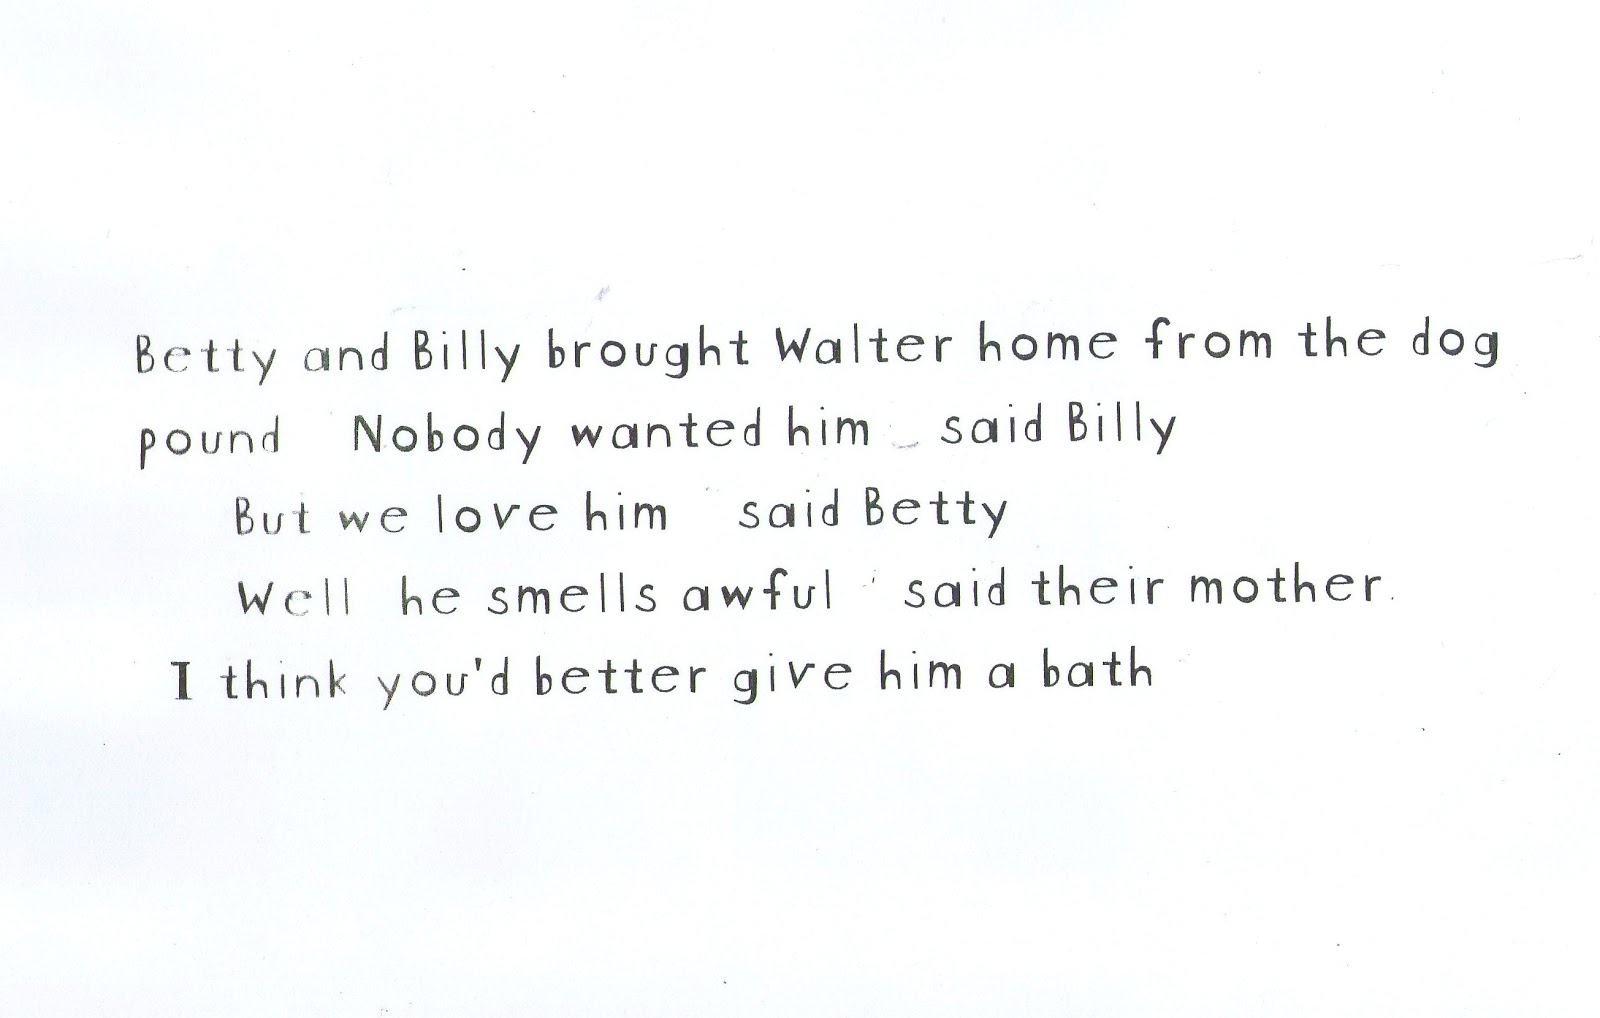 Betty and Billy brought Walter home from the dog
pound Nobody wanted him said Billy
But we love him said Betty
Well he smells awful said their mother.
I think you'd better give him a bath